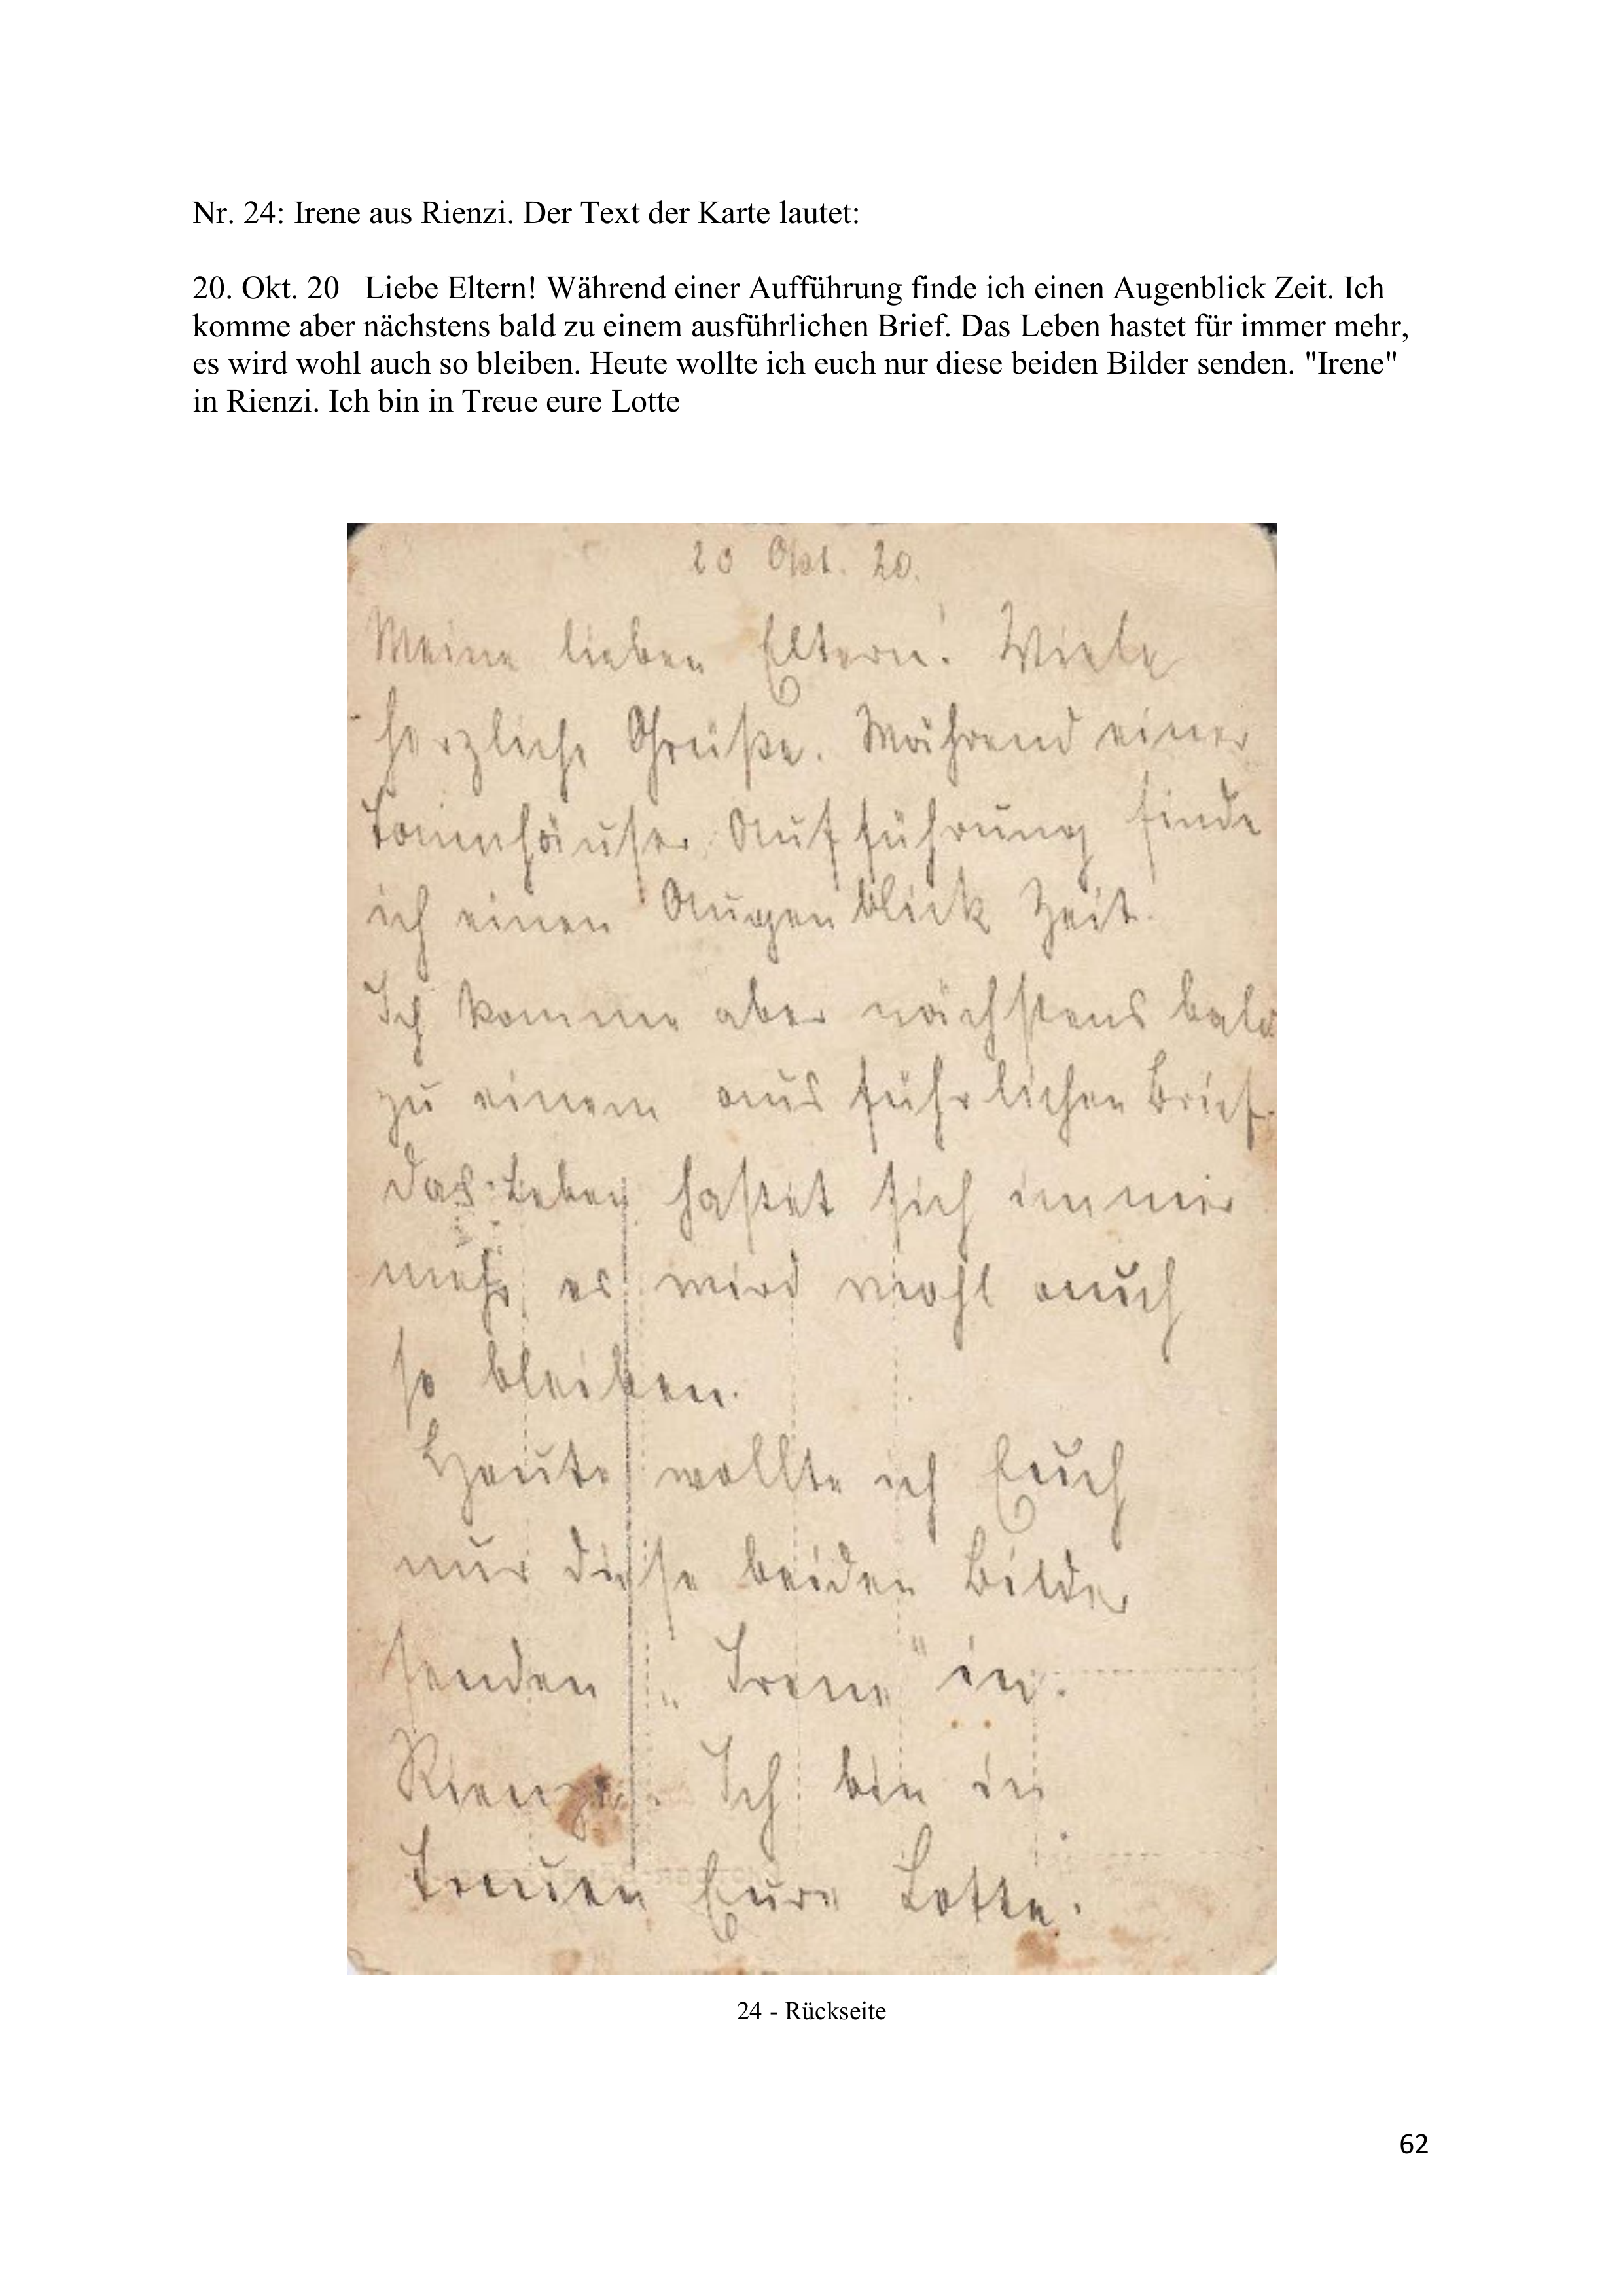 Nr. 24: Irene aus Rienzi. Der Text der Karte lautet:
20. Okt. 20   Liebe Eltern! Während einer Aufführung finde ich einen Augenblick Zeit. Ich
komme aber nächstens bald zu einem ausführlichen Brief. Das Leben hastet für immer mehr,
es wird wohl auch so bleiben. Heute wollte ich euch nur diese beiden Bilder senden. "Irene"
in Rienzi. Ich bin in Treue eure Lotte
20 Okt. 20.
Meine lieben Eltern! Viele
herzliche Grüße. Während einer
Tannhäuser Aufführung finde
ich einen Augenblick Zeit.
Ich komme aber nächstens bald
zu einem ausführlichen Brief.
Das Leben hastet sich immer
mehr, es wird wohl auch
so bleiben.
Heute wollte ich Euch
nur diese beiden Bilder
senden „Irene" in
Rienzi. Ich bin in
Treuen Eure Lotte.
24 - Rückseite
62